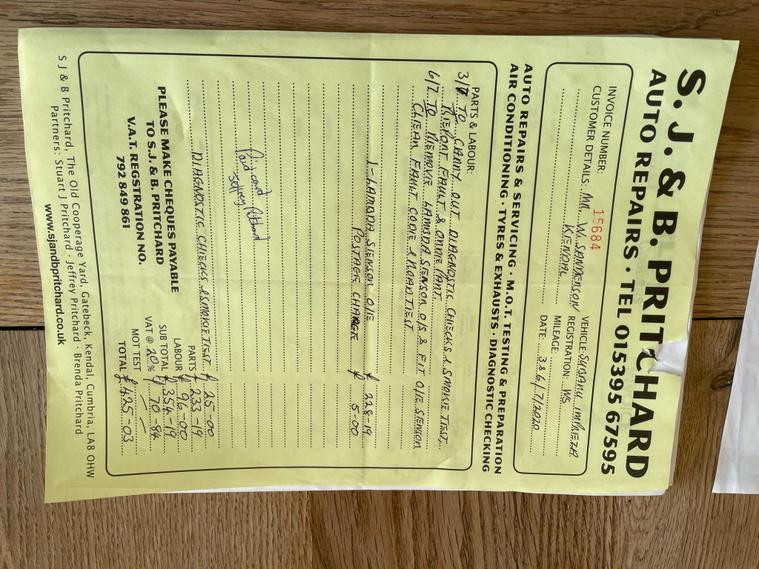 S. J. & B. PRITCHARD
AUTO REPAIRS · TEL 015395 67595
INVOICE NUMBER: 15684
CUSTOMER DETAILS: MR W. SANDERSON
KENDAL
VEHICLE SUBARU IMPREZA
REGISTRATION: W5
MILEAGE:
DATE: 3 & 6/7/2020
AUTO REPAIRS & SERVICING · M.O.T. TESTING & PREPARATION
AIR CONDITIONING · TYRES & EXHAUSTS · DIAGNOSTIC CHECKING
PARTS & LABOUR:
3/7 TO CARRY OUT DIAGNOSTIC CHECKS & SMOKE TEST,
REPORT FAULT & ORDER PART.
6/7 TO REMOVE LAMBDA SENSOR O/S & FIT O/E SENSOR
CLEAR FAULT CODE & ROAD TEST
1 - LAMBDA SENSOR O/E £ 228-19
POSTAGE CHARGE £ 5-00
Paid card
DIAGNOSTIC CHECKS & SMOKE TEST £ 25-00
PARTS £ 233-19
LABOUR £ 96-00
SUB TOTAL £ 354-19
VAT @ 20% £ 70-84
MOT TEST
TOTAL £ 425-03
PLEASE MAKE CHEQUES PAYABLE
TO S.J. & B. PRITCHARD
V.A.T. REGISTRATION NO.
792 849 861
S J & B Pritchard, The Old Cooperage Yard, Gatebeck, Kendal, Cumbria, LA8 0HW
Partners: Stuart J Pritchard · Jeffrey Pritchard · Brenda Pritchard
www.sjandbpritchard.co.uk